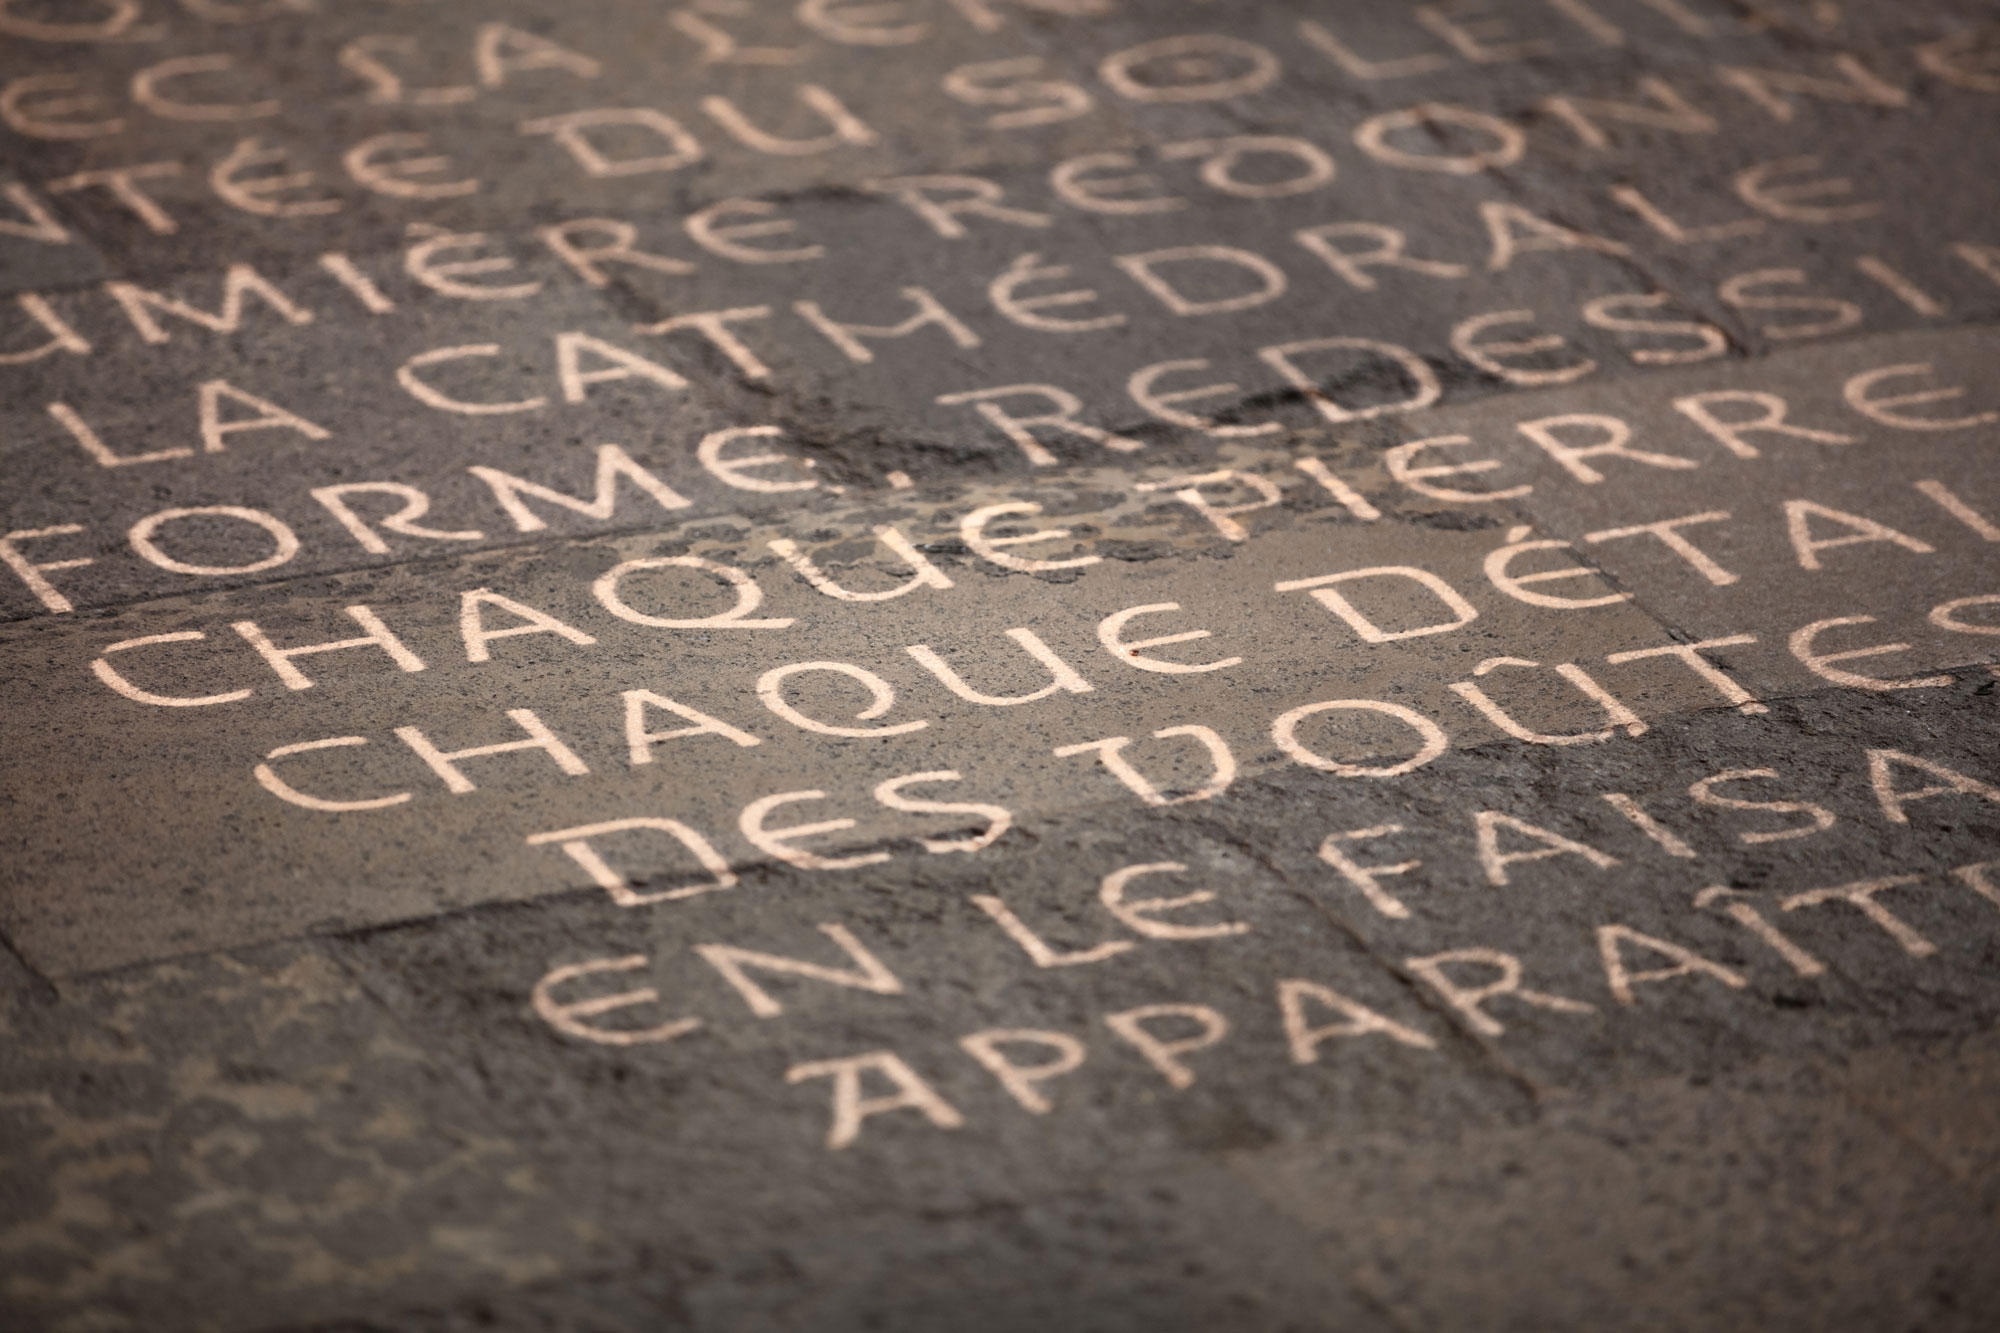 EC LA
NTÉE DU SOLEIL
UMIÈRE REDONNE
LA CATHÉDRALE
FORME, REDESSIN
CHAQUE PIERRE
CHAQUE DÉTAI
DES VOÛTES
EN LE FAISA
APPARAÎT